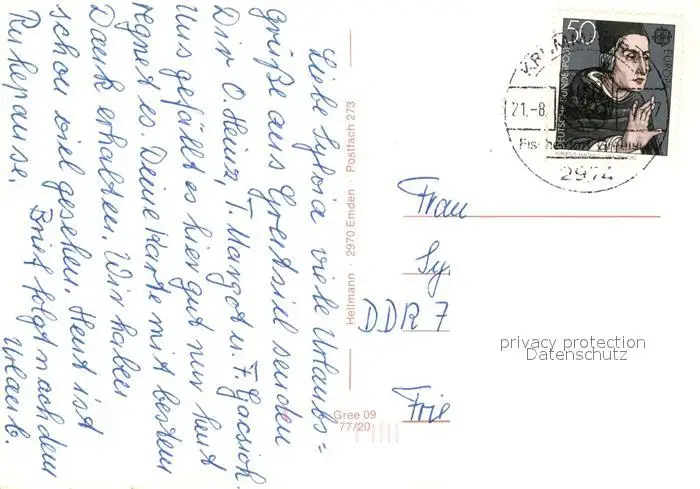 Liebe Sylvia viele Urlaubs=
grüße aus Greetsiel senden
Dir O. Heinz, T. Margot u. F.
Uns gefällt es hier gut nur heut
regnet es. Deine Karte mit bestem
Dank erhalten. Wir haben
schon viel gesehen. Heut ist
Ruhepause. Brief folgt nach dem
Urlaub.
Hellmann · 2970 Emden · Postfach 273
Gree 09
77/20
50
EUROPA
DEUTSCHE BUNDESPOST
21.-8.
2974
Frau
Sy
DDR 7
Frie
privacy protection
Datenschutz